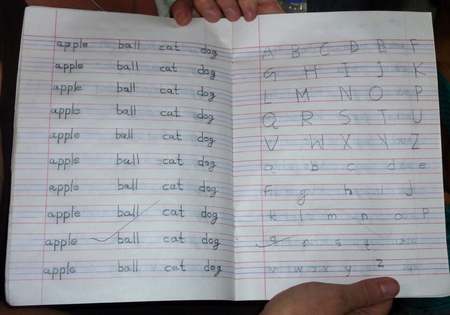 apple ball cat dog
apple ball cat dog
apple ball cat dog
apple ball cat dog
apple ball cat dog
apple ball cat dog
apple ball cat dog
apple ball cat dog
apple ball cat dog
apple ball cat dog
A B C D E F
G H I J K
L M N O P
Q R S T U
V W X Y Z
a b c d e
f g h i j
k l m n o p
q r s t
v w x y z